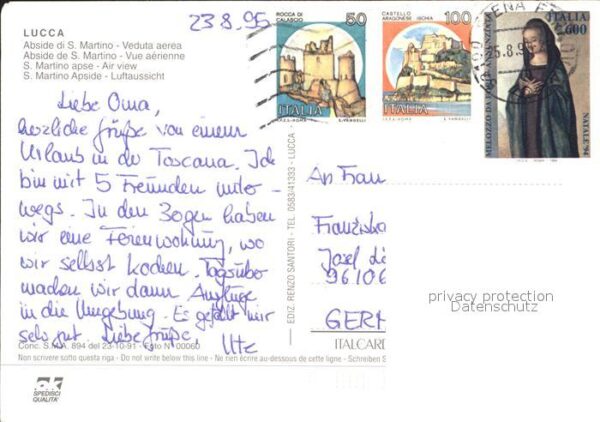 23.8.95
LUCCA
Abside di S. Martino - Veduta aerea
Abside de S. Martino - Vue aérienne
S. Martino apse - Air view
S. Martino Apside - Luftaussicht
ROCCA DI CALASCIO
50
ITALIA
I.P.Z.S.-ROMA E. VANGELLI
CASTELLO ARAGONESE ISCHIA
100
ITALIA
I.P.Z.S.-ROMA E. VANGELLI
ITALIA
600
NATALE '94
25.8.95
Liebe Oma,
herzliche Grüße von einem
Urlaub in der Toscana. Ich
bin mit 5 Freunden unter-
wegs. In den Bogen haben
wir eine Ferienwohnung, wo
wir selbst kochen. Tagsüber
machen wir dann Ausflüge
in die Umgebung. Es gefällt mir
sehr gut. Liebe Grüße,
Ute
An Frau
Franziska
Josef
96106
GERM
EDIZ. RENZO SANTORI - TEL. 0583/41333 - LUCCA
ITALCARD
privacy protection
Datenschutz
Conc. S.M.A. 894 del 23-10-91 - Foto N° 00060
Non scrivere sotto questa riga - Do not write below this line - Ne rien écrire au-dessous de cette ligne - Schreiben S
SPEDISCI
QUALITA'